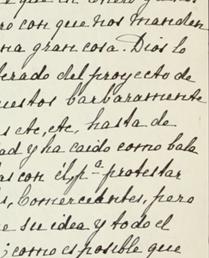 ro con que nos manden
na gran cosa. Dios lo
erado del proyecto de
uestos barbaramente
s etc, etc, hasta de
ad y ha caido como bala
as con él, pª protestar
s, Comerciantes, pero
e su idea y todo el
; como es posible que